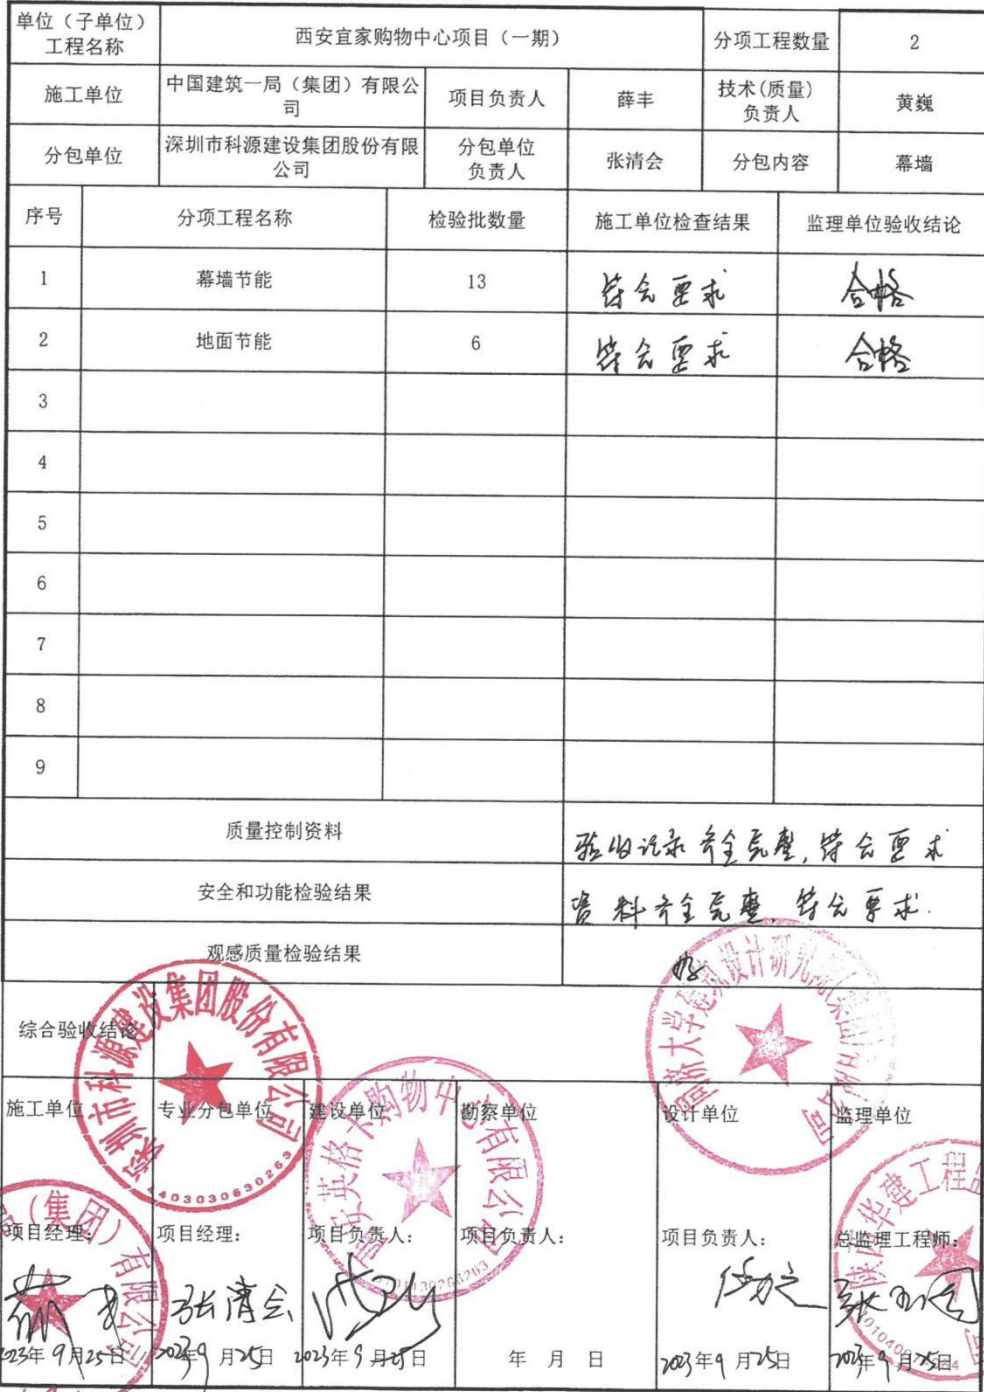 单位（子单位）
工程名称
西安宜家购物中心项目（一期）
分项工程数量
2
施工单位
中国建筑一局（集团）有限公
司
项目负责人
薛丰
技术(质量)
负责人
黄巍
分包单位
深圳市科源建设集团股份有限
公司
分包单位
负责人
张清会
分包内容
幕墙
序号 分项工程名称 检验批数量 施工单位检查结果 监理单位验收结论
1 幕墙节能 13 符合要求 合格
2 地面节能 6 符合要求 合格
3
4
5
6
7
8
9
质量控制资料 验收记录齐全完整,符合要求
安全和功能检验结果 资料齐全完整,符合要求.
观感质量检验结果 好
综合验收结论
施工单位 专业分包单位 建设单位 勘察单位 设计单位 监理单位
项目经理: 项目经理: 项目负责人: 项目负责人: 项目负责人: 总监理工程师:
张清会
2023年9月25日 2023年9月25日 2023年9月25日 年 月 日 2023年9月25日 2023年9月25日
深圳市科源建设集团股份有限公司
4403030630263
（集团）有限公司
购物中心有限公司
同济大学建筑设计研究院(集团)有限公司
华建工程